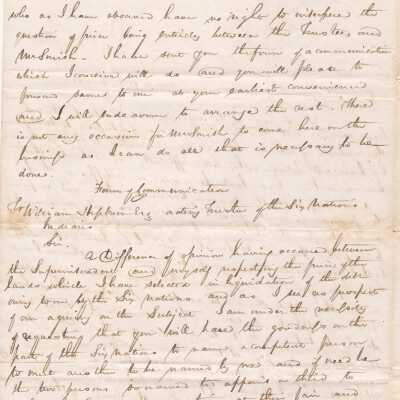 who as I have observed have no right to interfere the
question of price being entirely between the Trustees and
Mr Smish. I have sent you the form of a communication
which I conceive will do and you will please to
forward same to me at your earliest convenience
and I will endeavour to arrange the rest. There
is not any occasion for Mr Smish to come here on the
business as I can do all that is necessary to be
done.
Form of Communication
To William Hepburn Esq acting Trustee of the Six Nations
Indians
Sir.
A Difference of opinion having occurred between
the Superintendent and myself respecting the price of the
lands which I have selected in liquidation of the debt
owing to me by the Six Nations and as I see no prospect
of our agreeing on the subject I am under the necessity
of requesting that you will have the goodness on the
part of the Six Nations to name a competent person
to meet another to be named by me and if need be
the two persons so named to appoint a third to
at this fair and